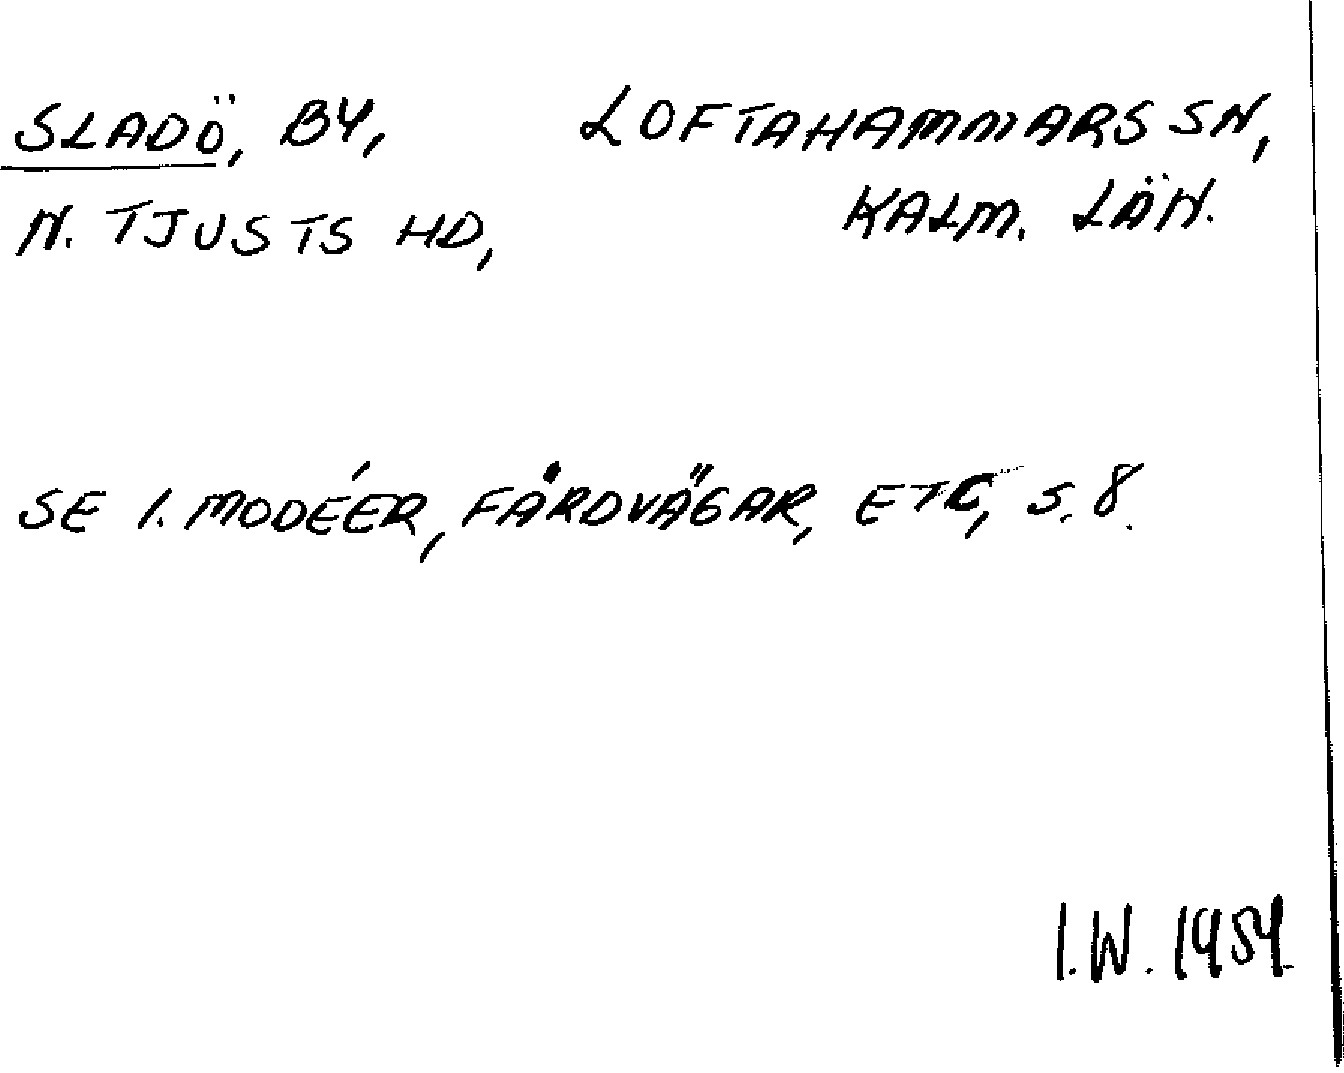 SLADÖ, BY, LOFTAHAMMARS SN,
N. TJUSTS HD, KALM. LÄN.
SE I. MODÉER, FÄRDVÄGAR, ETC, S. 8.
I.W. 1954